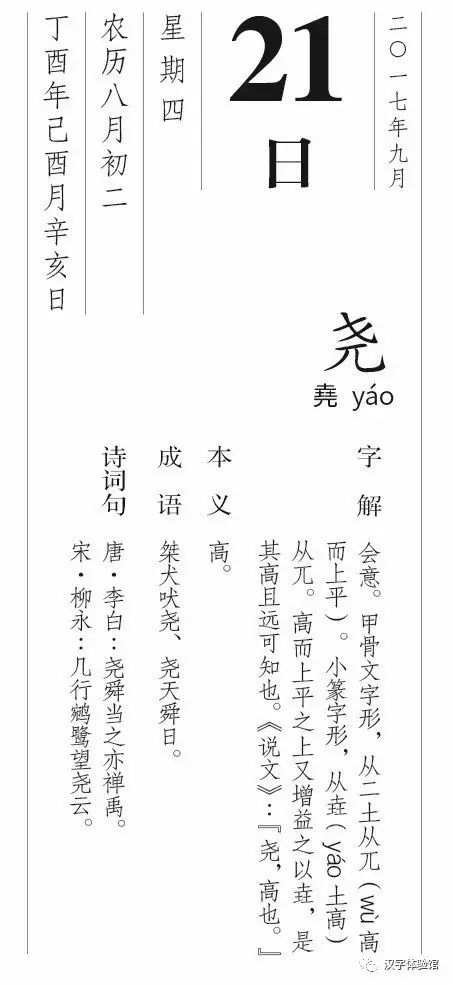 二〇一七年九月
21
日
星期四
农历八月初二
丁酉年己酉月辛亥日
尧
堯 yáo
字解
会意。甲骨文字形，从二土从兀（wù 高
而上平）。小篆字形，从垚（yáo 土高）
从兀。高而上平之上又增益之以垚，是
其高且远可知也。《说文》：『尧，高也。』
本义
高。
成语
桀犬吠尧、尧天舜日。
诗词句
唐·李白：尧舜当之亦禅禹。
宋·柳永：几行鹓鹭望尧云。
汉字体验馆